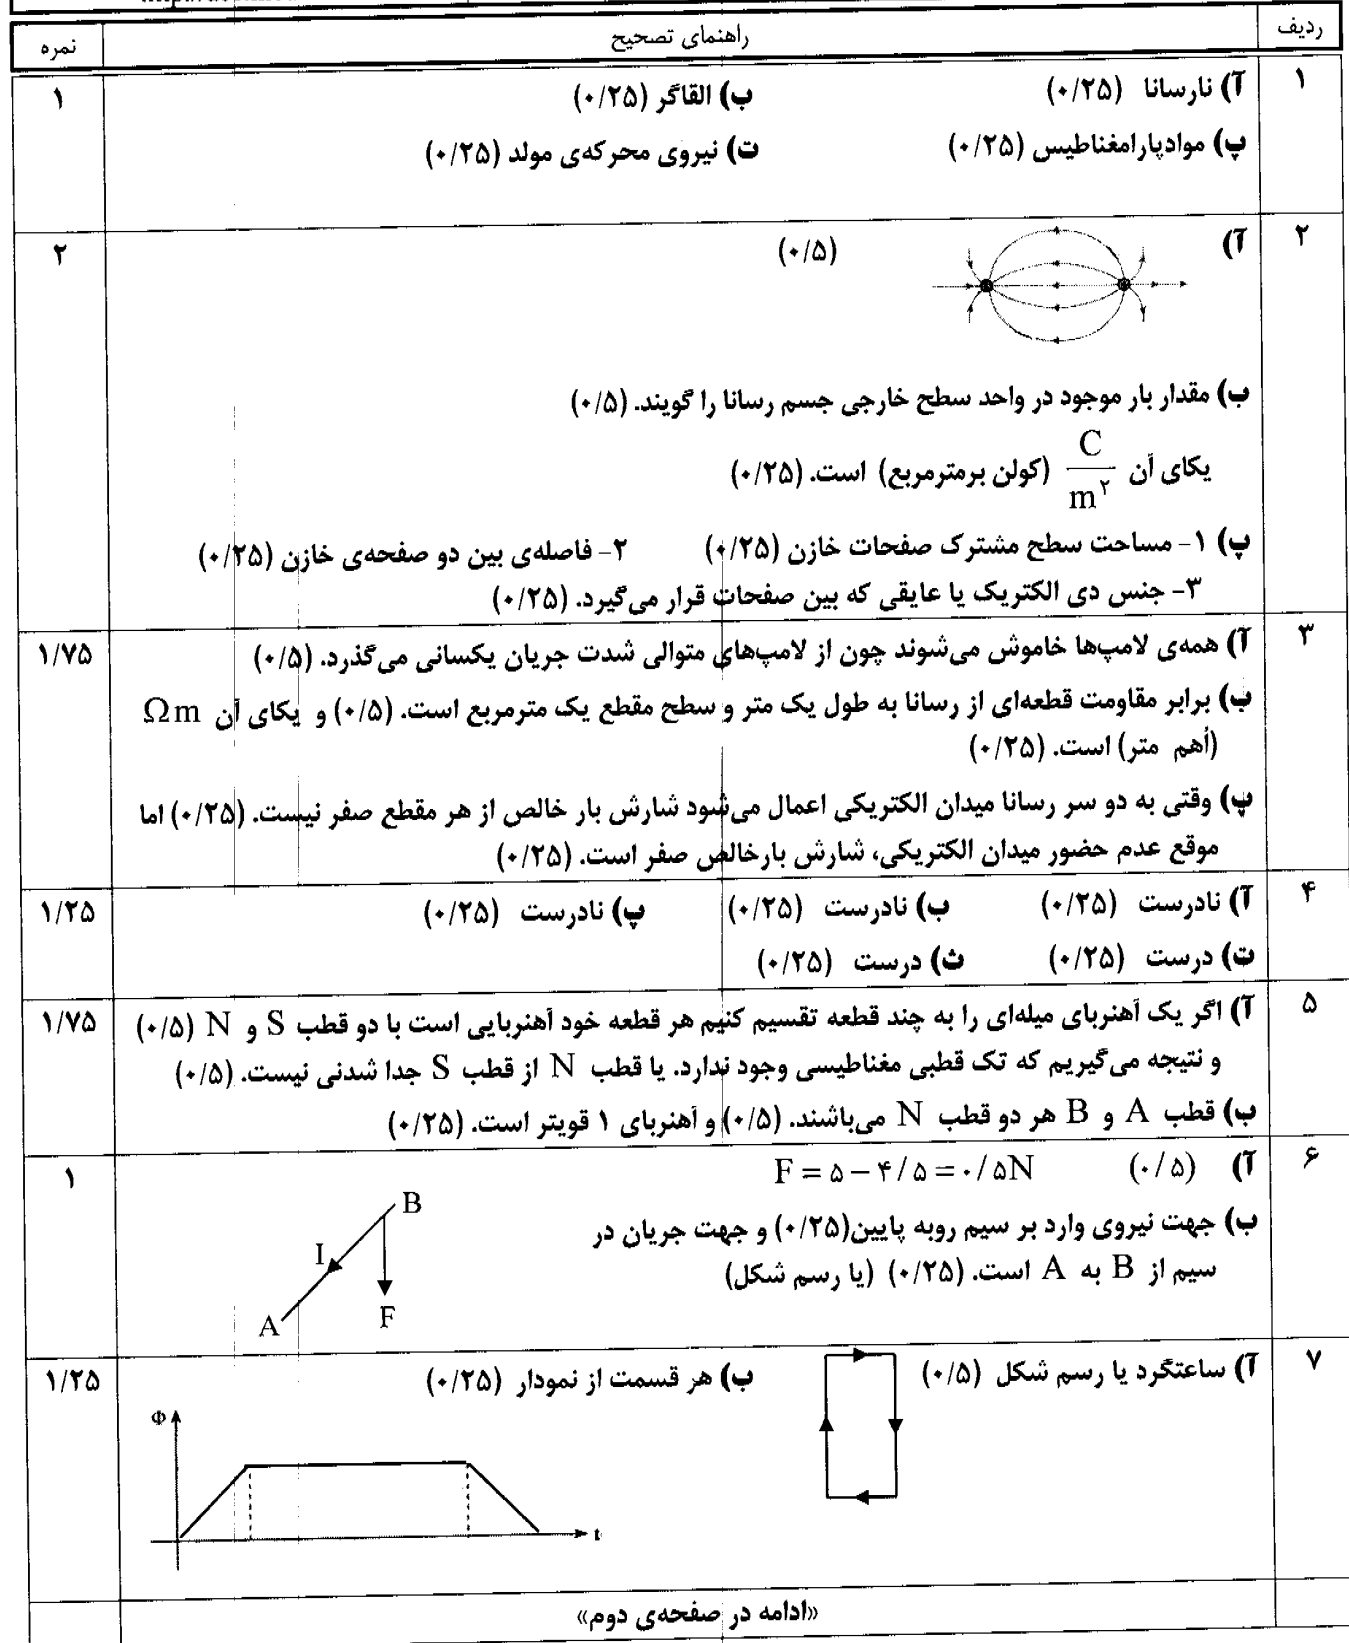 ردیف راهنمای تصحیح نمره
۱ آ) نارسانا (۰/۲۵) ب) القاگر (۰/۲۵) ۱
پ) موادپارامغناطیس (۰/۲۵) ت) نیروی محرکه‌ی مولد (۰/۲۵)
۲ آ) (۰/۵) ۲
ب) مقدار بار موجود در واحد سطح خارجی جسم رسانا را گویند. (۰/۵)
یکای آن C/m۲ (کولن برمترمربع) است. (۰/۲۵)
پ) ۱- مساحت سطح مشترک صفحات خازن (۰/۲۵) ۲- فاصله‌ی بین دو صفحه‌ی خازن (۰/۲۵)
۳- جنس دی الکتریک یا عایقی که بین صفحات قرار می‌گیرد. (۰/۲۵)
۳ آ) همه‌ی لامپ‌ها خاموش می‌شوند چون از لامپ‌های متوالی شدت جریان یکسانی می‌گذرد. (۰/۵) ۱/۷۵
ب) برابر مقاومت قطعه‌ای از رسانا به طول یک متر و سطح مقطع یک مترمربع است. (۰/۵) و یکای آن Ωm
(اُهم متر) است. (۰/۲۵)
پ) وقتی به دو سر رسانا میدان الکتریکی اعمال می‌شود شارش بار خالص از هر مقطع صفر نیست. (۰/۲۵) اما
موقع عدم حضور میدان الکتریکی، شارش بارخالص صفر است. (۰/۲۵)
۴ آ) نادرست (۰/۲۵) ب) نادرست (۰/۲۵) پ) نادرست (۰/۲۵) ۱/۲۵
ت) درست (۰/۲۵) ث) درست (۰/۲۵)
۵ آ) اگر یک آهنربای میله‌ای را به چند قطعه تقسیم کنیم هر قطعه خود آهنربایی است با دو قطب S و N (۰/۵) ۱/۷۵
و نتیجه می‌گیریم که تک قطبی مغناطیسی وجود ندارد. یا قطب N از قطب S جدا شدنی نیست. (۰/۵)
ب) قطب A و B هر دو قطب N می‌باشند. (۰/۵) و آهنربای ۱ قویتر است. (۰/۲۵)
۶ آ) (۰/۵) F = ۵ − ۴/۵ = ۰/۵N ۱
ب) جهت نیروی وارد بر سیم روبه پایین(۰/۲۵) و جهت جریان در
سیم از B به A است. (۰/۲۵) (یا رسم شکل)
B
I
A
F
۷ آ) ساعتگرد یا رسم شکل (۰/۵) ب) هر قسمت از نمودار (۰/۲۵) ۱/۲۵
Φ
t
«ادامه در صفحه‌ی دوم»